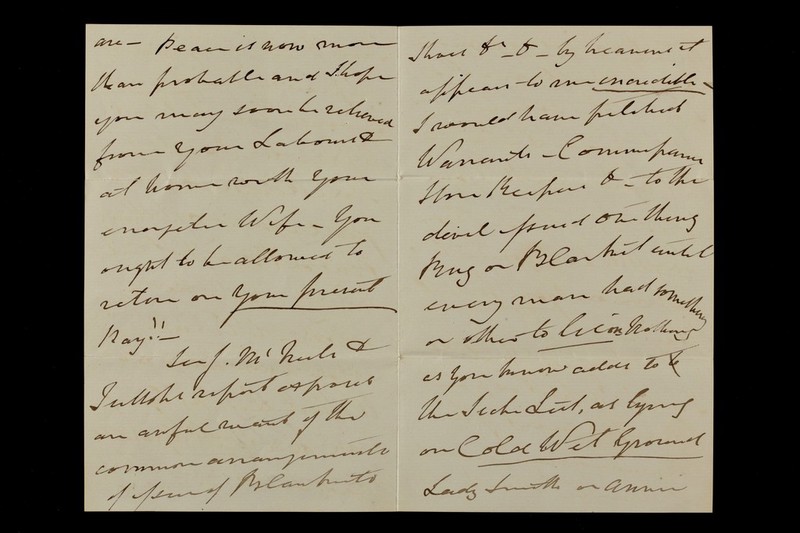 are — Peace is now more
than probable and I hope
you may soon be relieved
from your Labours &
at home with your
energetic Wife — You
ought to be allowed to
retire on your present
Pay!! —
Sir J. McNeill &
Tulloch's report exposes
an awful want of the
common arrangements
of issue of Blankets
Shoes &c — & — by heavens it
appears to me incredible —
I would have pitched
Warrants — Commissaries
Store Keepers & — to the
devil issued one thing
Rug or Blanket until
every man had something
or other to lie on Nothing
as you know adds to
the Sick List, as lying
on Cold Wet Ground
Lady Smith